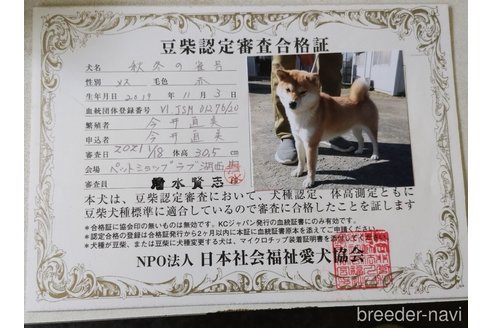 豆柴認定審査合格証
犬名 秋冬の宝号
性別 メス 毛色 赤
生年月日 2019 11月 3日
血統団体登録番号 VJSM 01276/20
繁殖者 今井 直美
申込者 今井 直美
審査日 2021 1/18 体高 30.5cm
会場 ペットショップラブ湖西
審査員 水賢志
本犬は、豆柴認定審査において、犬種認定、体高測定ともに
豆柴犬種標準に適合しているので審査に合格したことを証します
*合格証に協会印の無いものは無効です。KCジャパン発行の血統証書にのみ有効です。
*認定合格の登録は合格証発行から2ヶ月以内に本証に血統証書原本を添えてご申請ください。
*犬種が豆柴、または豆柴に犬種変更する犬は、マイクロチップ装着証明書を添えてください。
NPO法人 日本社会福祉愛犬協会
breeder-navi